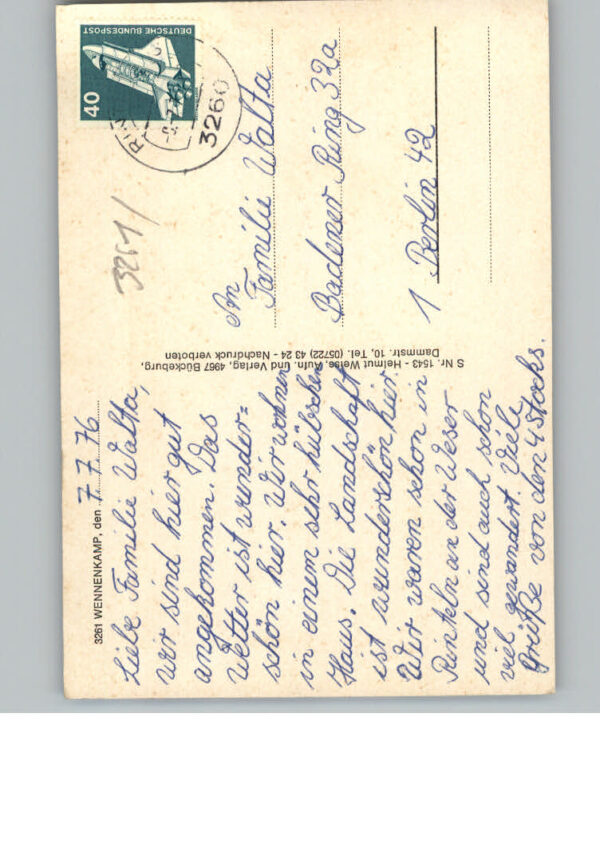 3261 WENNENKAMP, den 7.7.76
Liebe Familie Walta,
wir sind hier gut
angekommen. Das
Wetter ist wunder=
schön hier. Wir wohnen
in einem sehr hübschen
Haus. Die Landschaft
ist wunderschön hier.
Wir waren schon in
Rinteln an der Weser
und sind auch schon
viel gewandert. Viele
Grüße von den 4 Stocks.
S Nr. 1543 - Helmut Weise, Aufn. und Verlag, 4967 Bückeburg,
Dammstr. 10, Tel. (05722) 43 24 - Nachdruck verboten
3261/
DEUTSCHE BUNDESPOST
40
3260
An
Familie Walta
Badener Ring 32a
1 Berlin 42